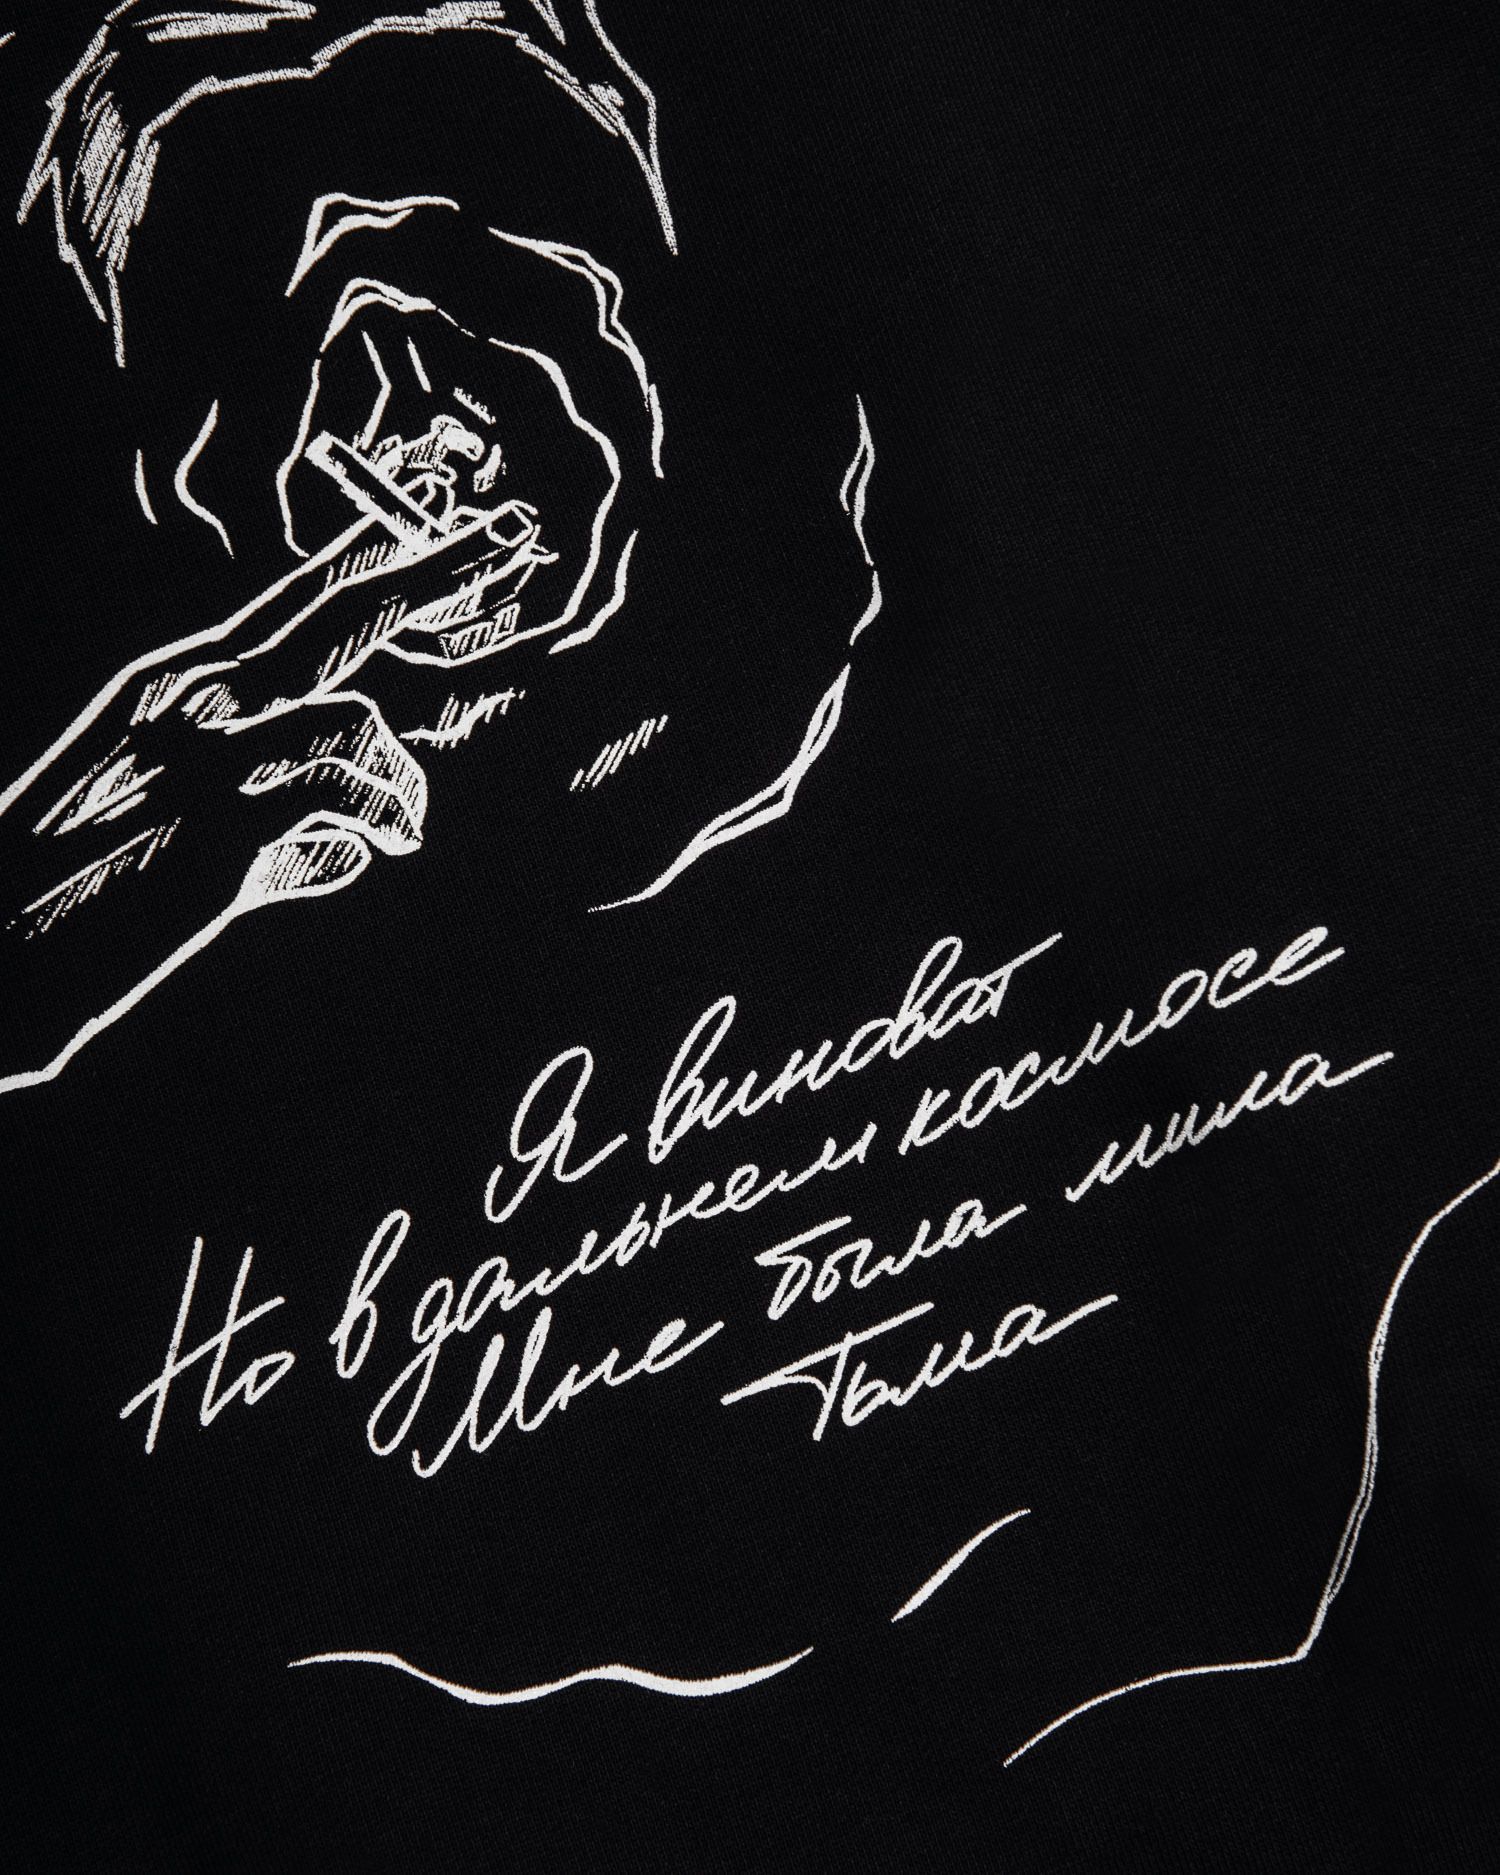 Я виноват
Но в дальнем космосе
Мне была мила
Тьма